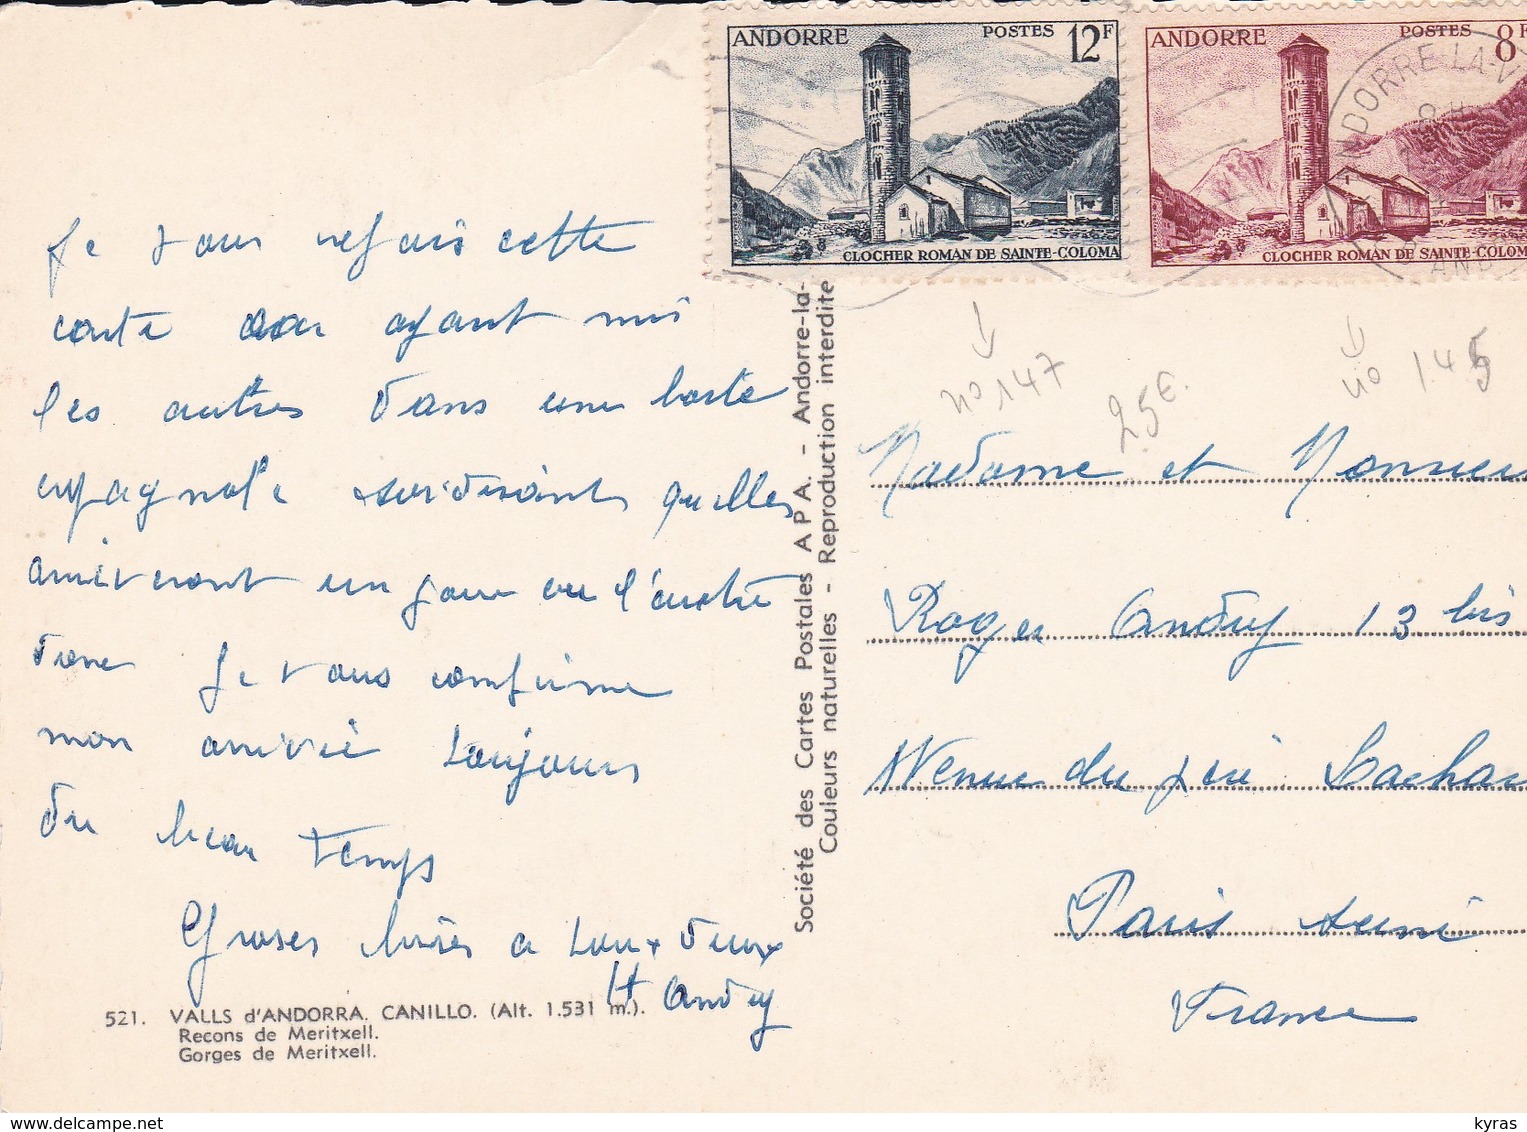 ANDORRE POSTES 12F
CLOCHER ROMAN DE SAINTE-COLOMA
ANDORRE POSTES 8F
CLOCHER ROMAN DE SAINTE-COLOM
ANDORRE-LA-V
AND
Je vous refais cette
carte ayant mis
les autres dans une boite
espagnole quelles
arriveront un jour ou l'autre
donc Je vous confirme
mon arrivée toujours
du beau temps
Groses bises a tous deux
H Andry
521. VALLS d'ANDORRA. CANILLO. (Alt. 1.531 m.).
Recons de Meritxell.
Gorges de Meritxell.
Société des Cartes Postales A P A. - Andorre-la-
Couleurs naturelles - Reproduction interdite
no 147
25€.
no 145
Madame et Monsieu
Roger Andry 13 bis
Avenue du père Lachai
Paris
France
delcampe.net
kyras